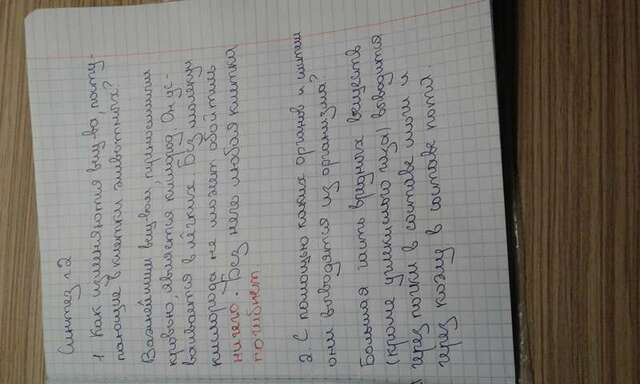 Синтез №2
1. Как изменяются вещ-ва, посту-
пающие в клетки животных?
Важнейшим вещ-вом, приносимым
кровью, является кислород. Он ус-
ваивается в лёгких. Без молекул
кислорода не может обойтись
ничего. Без него любая клетка
погибнет
2. С помощью каких органов и
они выводятся из организма?
Большая часть вредных веществ
(кроме углекислого газа) выводится
через почки в составе мочи и
через кожу в составе пота.